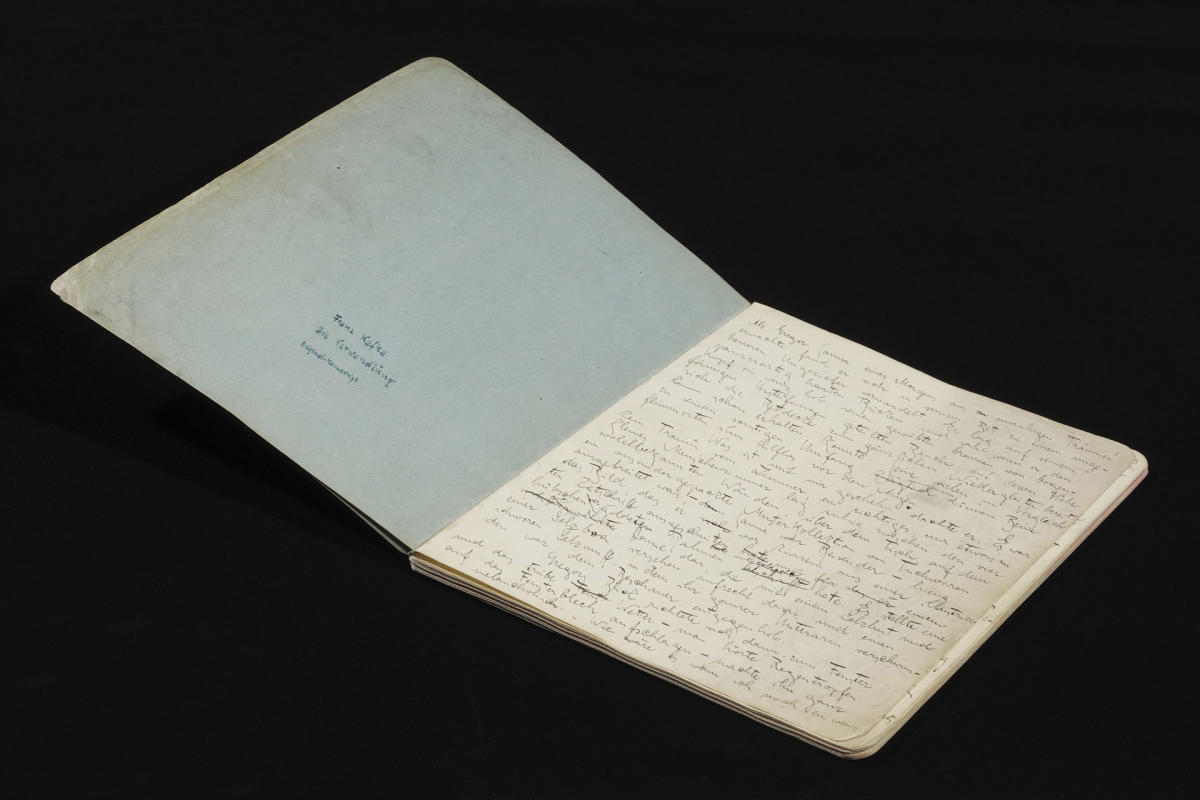 Franz Kafka
Die Verwandlung
Original-Manuscript
Als Gregor Samsa eines Morgens aus unruhigen Träumen
erwachte, fand er sich in seinem Bett zu einem unge-
heueren Ungeziefer verwandelt. Er lag auf seinem
panzerartig harten Rücken und sah, wenn er den
Kopf ein wenig hob, seinen gewölbten, braunen, von bogen-
förmigen Versteifungen geteilten Bauch, auf dessen Höhe
sich die Bettdecke, zum gänzlichen Niedergleiten bereit
kaum noch erhalten konnte. Seine vielen, im Vergleich
zu seinem sonstigen Umfang dünnen Beine
flimmerten ihm hilflos vor den Augen.
Was ist mit mir geschehen? dachte er. Es war
kein Traum, sein Zimmer, ein richtiges, nur etwas zu
kleines Menschenzimmer lag ruhig zwischen den vier
wohlbekannten Wänden, über dem Tisch, auf dem
eine auseinandergepackte Musterkollektion von Tuchwaren
ausgebreitet war – Samsa war Reisender – hieng
das Bild, das er vor kurzem aus einer illustrierten
Zeitschrift ausgeschnitten und in einem
hübschen Rahmen untergebracht hatte. Es stellte eine
Dame dar, die mit einem Pelzhut und
einer Pelzboa versehen aufrecht dasaß und einen
schweren Pelzmuff, in dem ihr ganzer Unterarm verschwun-
den war, dem Beschauer entgegen hob.
Gregors Blick richtete sich dann zum Fenster
und das trübe Wetter – man hörte Regentropfen
auf das Fensterblech aufschlagen – machte ihn ganz
melancholisch. "Wie wäre es wenn ich noch ein wenig